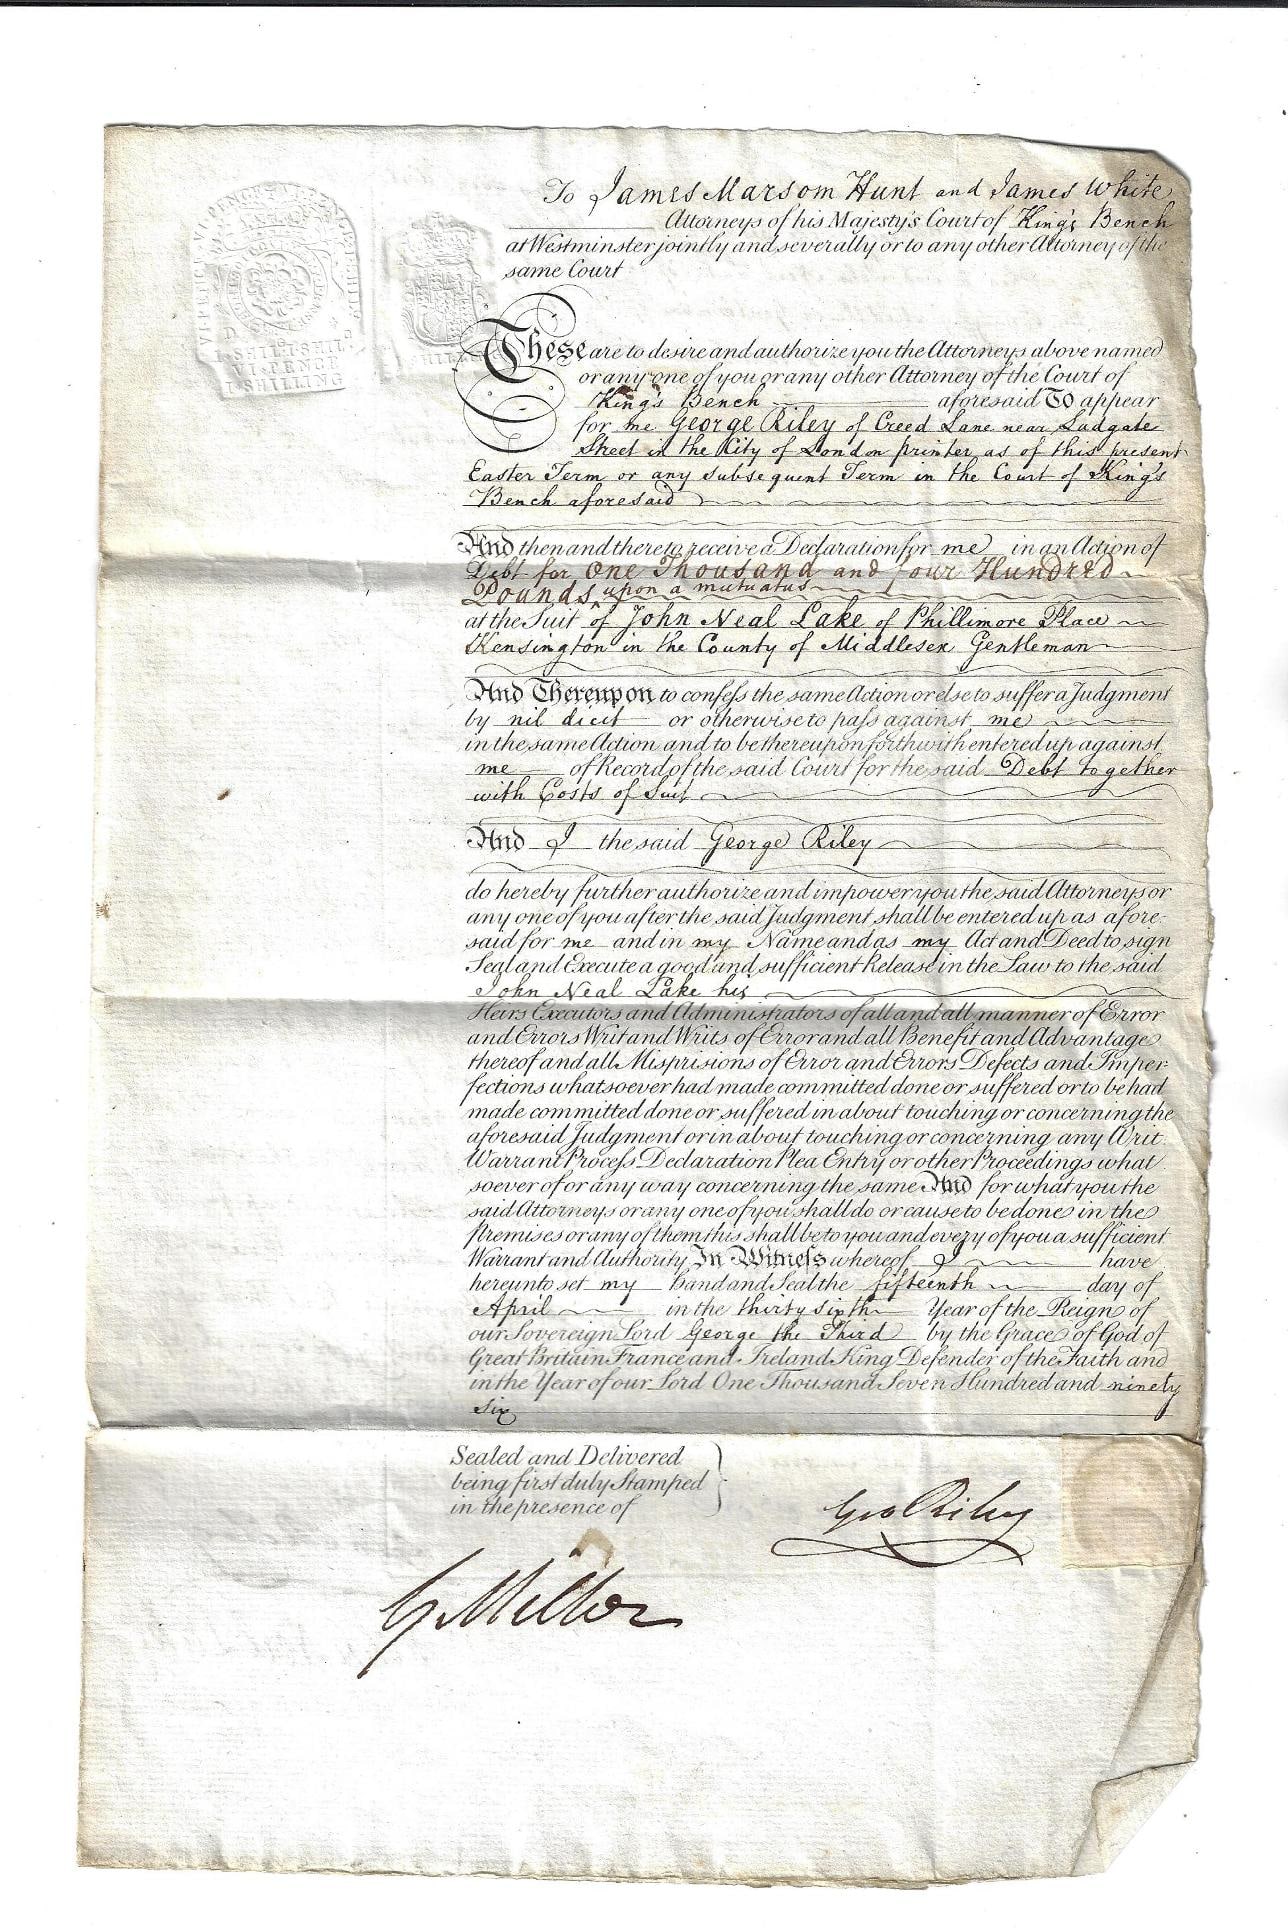 VI·PENCE·VI·PENCE
I·SHILL I·SHILL
VI·PENCE
I·SHILLING
To James Marsom Hunt and James White
Attorneys of his Majesty's Court of King's Bench
at Westminster jointly and severally or to any other Attorney of the
same Court
These are to desire and authorize you the Attorneys above named
or any one of you or any other Attorney of the Court of
King's Bench aforesaid To appear
for me George Riley of Creed Lane near Ludgate
Street in the City of London printer as of this present
Easter Term or any subsequent Term in the Court of King's
Bench aforesaid
And then and there to receive a Declaration for me in an Action of
Debt for One Thousand and four Hundred
Pounds upon a mutuatus
at the Suit of John Neal Lake of Phillimore Place
Kensington in the County of Middlesex Gentleman
And Thereupon to confess the same Action or else to suffer a Judgment
by nil dicit or otherwise to pass against me
in the same Action and to be thereupon forthwith entered up against
me of Record of the said Court for the said Debt together
with Costs of Suit
And I the said George Riley
do hereby further authorize and impower you the said Attorneys or
any one of you after the said Judgment shall be entered up as afore-
said for me and in my Name and as my Act and Deed to sign
Seal and Execute a good and sufficient Release in the Law to the said
John Neal Lake his
Heirs Executors and Administrators of all and all manner of Error
and Errors Writ and Writs of Error and all Benefit and Advantage
thereof and all Misprisions of Error and Errors Defects and Imper-
fections whatsoever had made committed done or suffered or to be had
made committed done or suffered in about touching or concerning the
aforesaid Judgment or in about touching or concerning any Writ
Warrant Process Declaration Plea Entry or other Proceedings what
soever of or any way concerning the same And for what you the
said Attorneys or any one of you shall do or cause to be done in the
premises or any of them this shall be to you and every of you a sufficient
Warrant and Authority In Witness whereof I have
hereunto set my hand and Seal the fifteenth day of
April in the thirty sixth Year of the Reign of
our Sovereign Lord George the Third by the Grace of God of
Great Britain France and Ireland King Defender of the Faith and
in the Year of our Lord One Thousand Seven Hundred and ninety
six
Sealed and Delivered
being first duly Stamped
in the presence of
Geo Riley
G. Miller